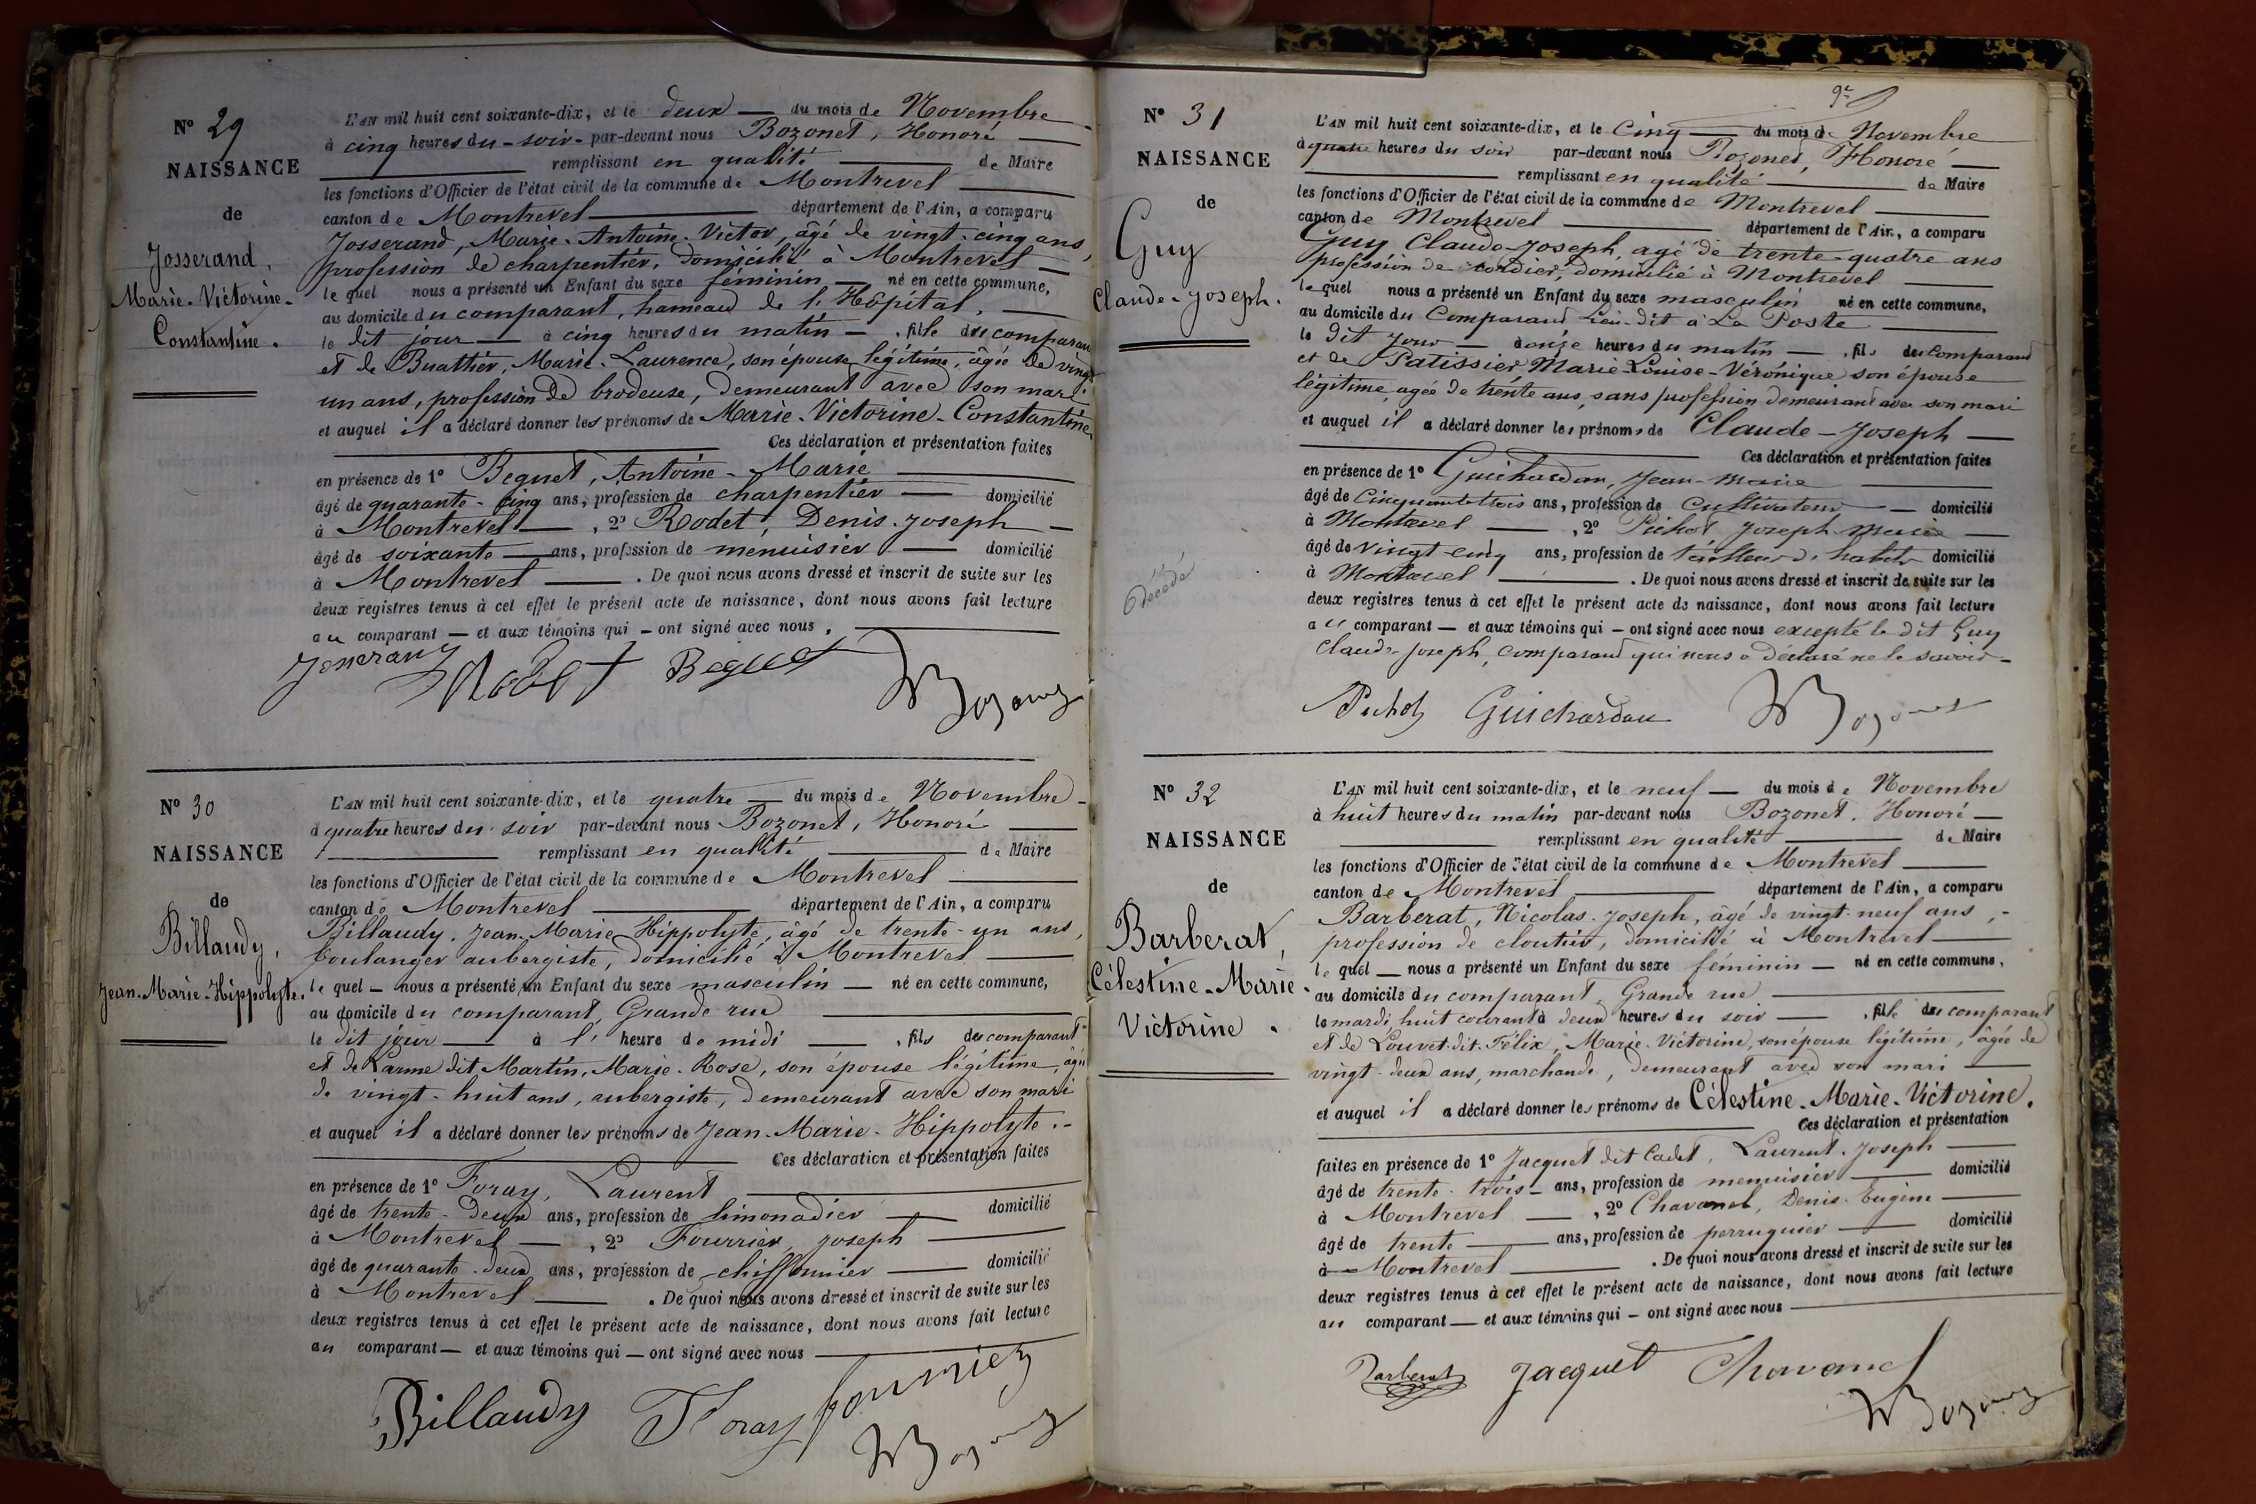 N° 29
NAISSANCE
de
Josserand,
Marie-Victorine-
Constantine.
L'AN mil huit cent soixante-dix, et le deux — du mois de Novembre
à cinq heures du - soir - par-devant nous Bozonet, Honoré —
— remplissant en qualité — de Maire
les fonctions d'Officier de l'état civil de la commune de Montrevel —
canton de Montrevel — département de l'Ain, a comparu
Josserand, Marie-Antoine-Victor, âgé de vingt-cinq ans,
profession de charpentier, domicilié à Montrevel —
le quel nous a présenté un Enfant du sexe féminin — né en cette commune,
au domicile du comparant, hameau de l'Hôpital, —
le dit jour — à cinq heures du matin — , fille du comparant
et de Buathier, Marie-Laurence, son épouse légitime, âgée de vingt
un ans, profession de brodeuse, demeurant avec son mari.
et auquel il a déclaré donner les prénoms de Marie-Victorine-Constantine.
— Ces déclaration et présentation faites
en présence de 1° Beguet, Antoine-Marie —
âgé de quarante-cinq ans, profession de charpentier — domicilié
à Montrevel — , 2° Rodet, Denis-Joseph —
âgé de soixante — ans, profession de menuisier — domicilié
à Montrevel — . De quoi nous avons dressé et inscrit de suite sur les
deux registres tenus à cet effet le présent acte de naissance, dont nous avons fait lecture
au comparant — et aux témoins qui — ont signé avec nous. —
Josserand Rodet Beguet
Bozonet
N° 30
NAISSANCE
de
Billaudy,
Jean-Marie-Hippolyte.
L'AN mil huit cent soixante-dix, et le quatre — du mois de Novembre -
à quatre heures du soir par-devant nous Bozonet, Honoré —
— remplissant en qualité — de Maire
les fonctions d'Officier de l'état civil de la commune de Montrevel —
canton de Montrevel — département de l'Ain, a comparu
Billaudy, Jean-Marie-Hippolyte, âgé de trente-un ans,
boulanger aubergiste, domicilié à Montrevel —
le quel — nous a présenté un Enfant du sexe masculin — né en cette commune,
au domicile du comparant, Grande rue —
le dit jour — à l' heure de midi — , fils du comparant
et de Larme dit Martin, Marie-Rose, son épouse légitime, âgée
de vingt-huit ans, aubergiste, demeurant avec son mari
et auquel il a déclaré donner les prénoms de Jean-Marie-Hippolyte. -
— Ces déclaration et présentation faites
en présence de 1° Foray, Laurent —
âgé de trente-deux ans, profession de limonadier — domicilié
à Montrevel — , 2° Fourrier, Joseph —
âgé de quarante-deux ans, profession de chiffonnier — domicilié
à Montrevel — . De quoi nous avons dressé et inscrit de suite sur les
deux registres tenus à cet effet le présent acte de naissance, dont nous avons fait lecture
au comparant — et aux témoins qui — ont signé avec nous —
Billaudy Foray Fourrier
Bozonet
N° 31
NAISSANCE
de
Guy
Claude-Joseph.
décédé
L'AN mil huit cent soixante-dix, et le Cinq — du mois de Novembre
à quatre heures du soir par-devant nous Bozonet, Honoré —
— remplissant en qualité — de Maire
les fonctions d'Officier de l'état civil de la commune de Montrevel —
canton de Montrevel — département de l'Ain, a comparu
Guy Claude-Joseph, agé de trente-quatre ans
profession de cordier, domicilié à Montrevel —
le quel nous a présenté un Enfant du sexe masculin né en cette commune,
au domicile du Comparand Lieu-dit à La Poste —
le dit Jour — à onze heures du matin — , fils du Comparand
et de Patissier Marie-Louise-Véronique son épouse
légitime, agée de trente ans, sans profession demeurant avec son mari
et auquel il a déclaré donner les prénoms de Claude-Joseph —
— Ces déclaration et présentation faites
en présence de 1° Guichardan, Jean-Marie —
âgé de Cinquante trois ans, profession de Cultivateur — domicilié
à Montrevel — , 2° Pichot Joseph Marie —
âgé de vingt-cinq ans, profession de tailleur d'habits domicilié
à Montrevel — . De quoi nous avons dressé et inscrit de suite sur les
deux registres tenus à cet effet le présent acte de naissance, dont nous avons fait lecture
au comparant — et aux témoins qui — ont signé avec nous excepté le dit Guy
Claude-Joseph, Comparand qui nous a déclaré ne le savoir -
Pichot Guichardan Bozonet
N° 32
NAISSANCE
de
Barberat,
Célestine-Marie-
Victorine.
L'AN mil huit cent soixante-dix, et le neuf — du mois de Novembre
à huit heures du matin par-devant nous Bozonet, Honoré —
— remplissant en qualité — de Maire
les fonctions d'Officier de l'état civil de la commune de Montrevel —
canton de Montrevel — département de l'Ain, a comparu
Barberat, Nicolas-Joseph, âgé de vingt-neuf ans, -
profession de cloutier, domicilié à Montrevel —
le quel — nous a présenté un Enfant du sexe féminin — né en cette commune,
au domicile du comparant, Grande rue —
le mardi huit courant à deux heures du soir — , fille du comparant
et de Louvet-dit-Félix, Marie-Victorine, son épouse légitime, âgée de
vingt-deux ans, marchande, demeurant avec son mari —
et auquel il a déclaré donner les prénoms de Célestine-Marie-Victorine.
— Ces déclaration et présentation
faites en présence de 1° Jacquet dit Cadet, Laurent-Joseph —
âgé de trente-trois - ans, profession de menuisier — domicilié
à Montrevel — , 2° Chavanel, Denis-Eugène —
âgé de trente — ans, profession de perruquier — domicilié
à Montrevel — . De quoi nous avons dressé et inscrit de suite sur les
deux registres tenus à cet effet le présent acte de naissance, dont nous avons fait lecture
au comparant — et aux témoins qui — ont signé avec nous —
Barberat Jacquet Chavanel
Bozonet